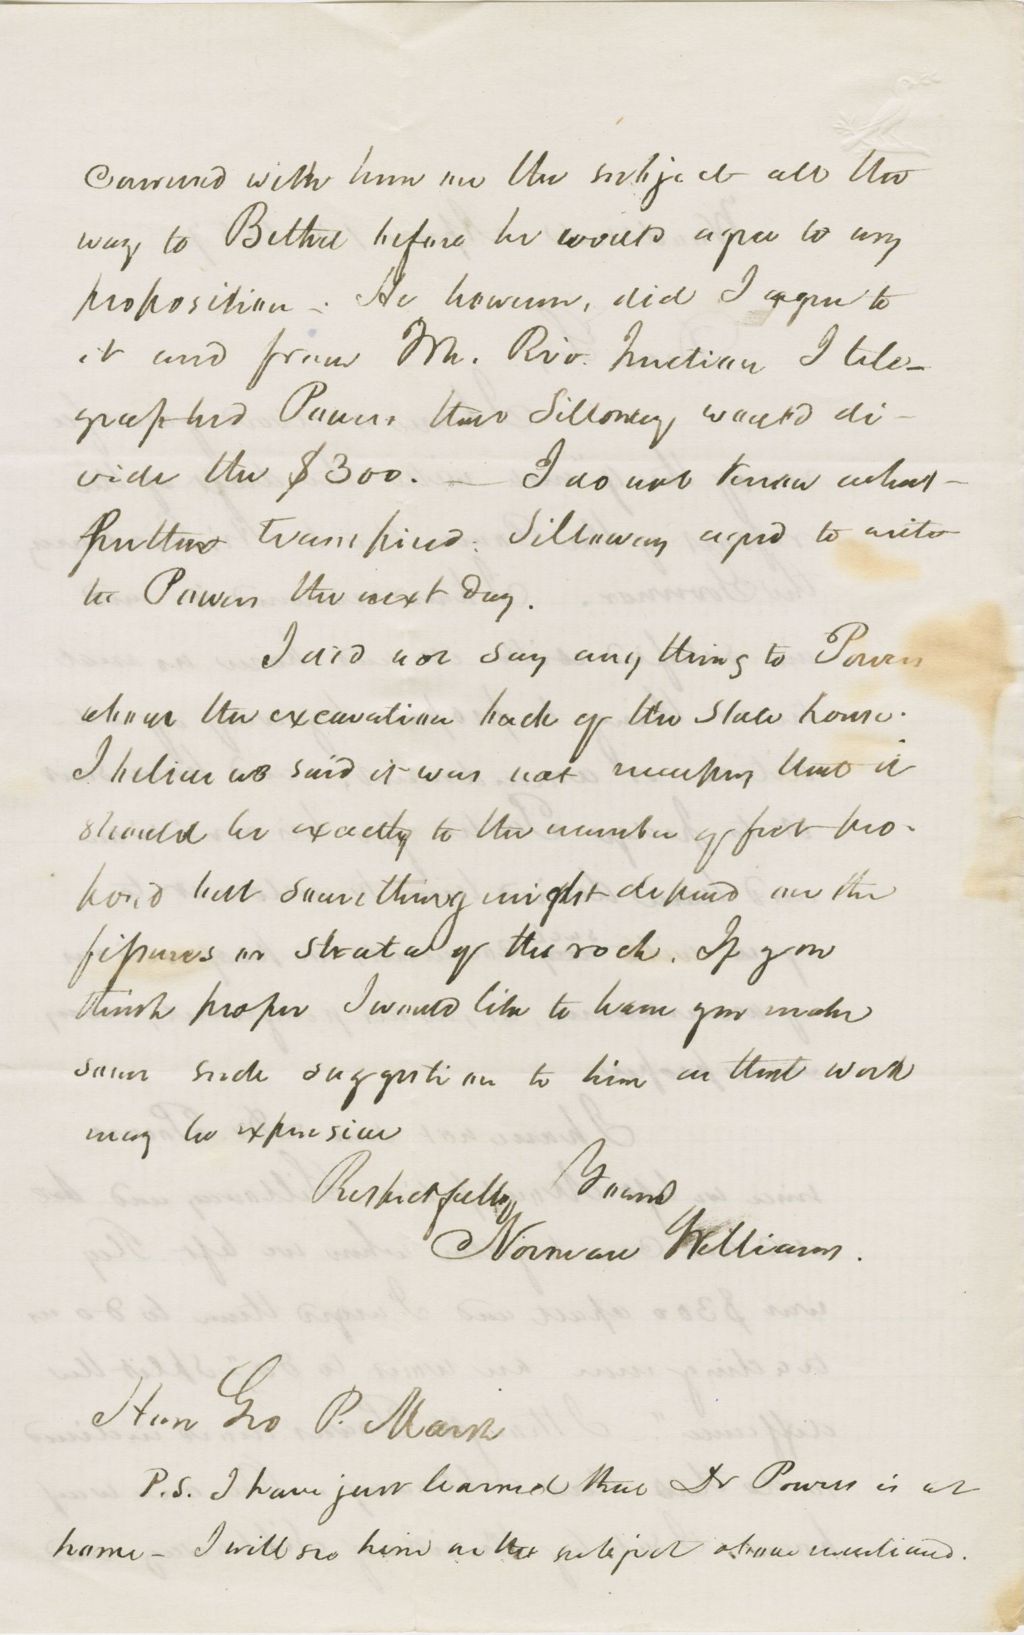 conversed with him on the subject all the
way to Bethel before he would agree to any
proposition - He however, did agree to
it and from Wh. Riv. Junction I tele-
graphed Powers that Silloway would di-
vide the $300. — I do not know what
further transpired. Silloway agreed to write
to Powers the next day.
I did not say any thing to Powers
about the excavation back of the State house.
I believe we said it was not necessary that it
should be exactly to the number of feet pro-
posed but something might depend on the
fissures or strata of the rock. If you
think proper I would like to have you make
some such suggestion to him as that work
may be expensive
Respectfully Yours
Norman Williams.
Hon Geo P. Marsh
P.S. I have just learned that Dr Powers is at
home - I will see him on the subject above mentioned.